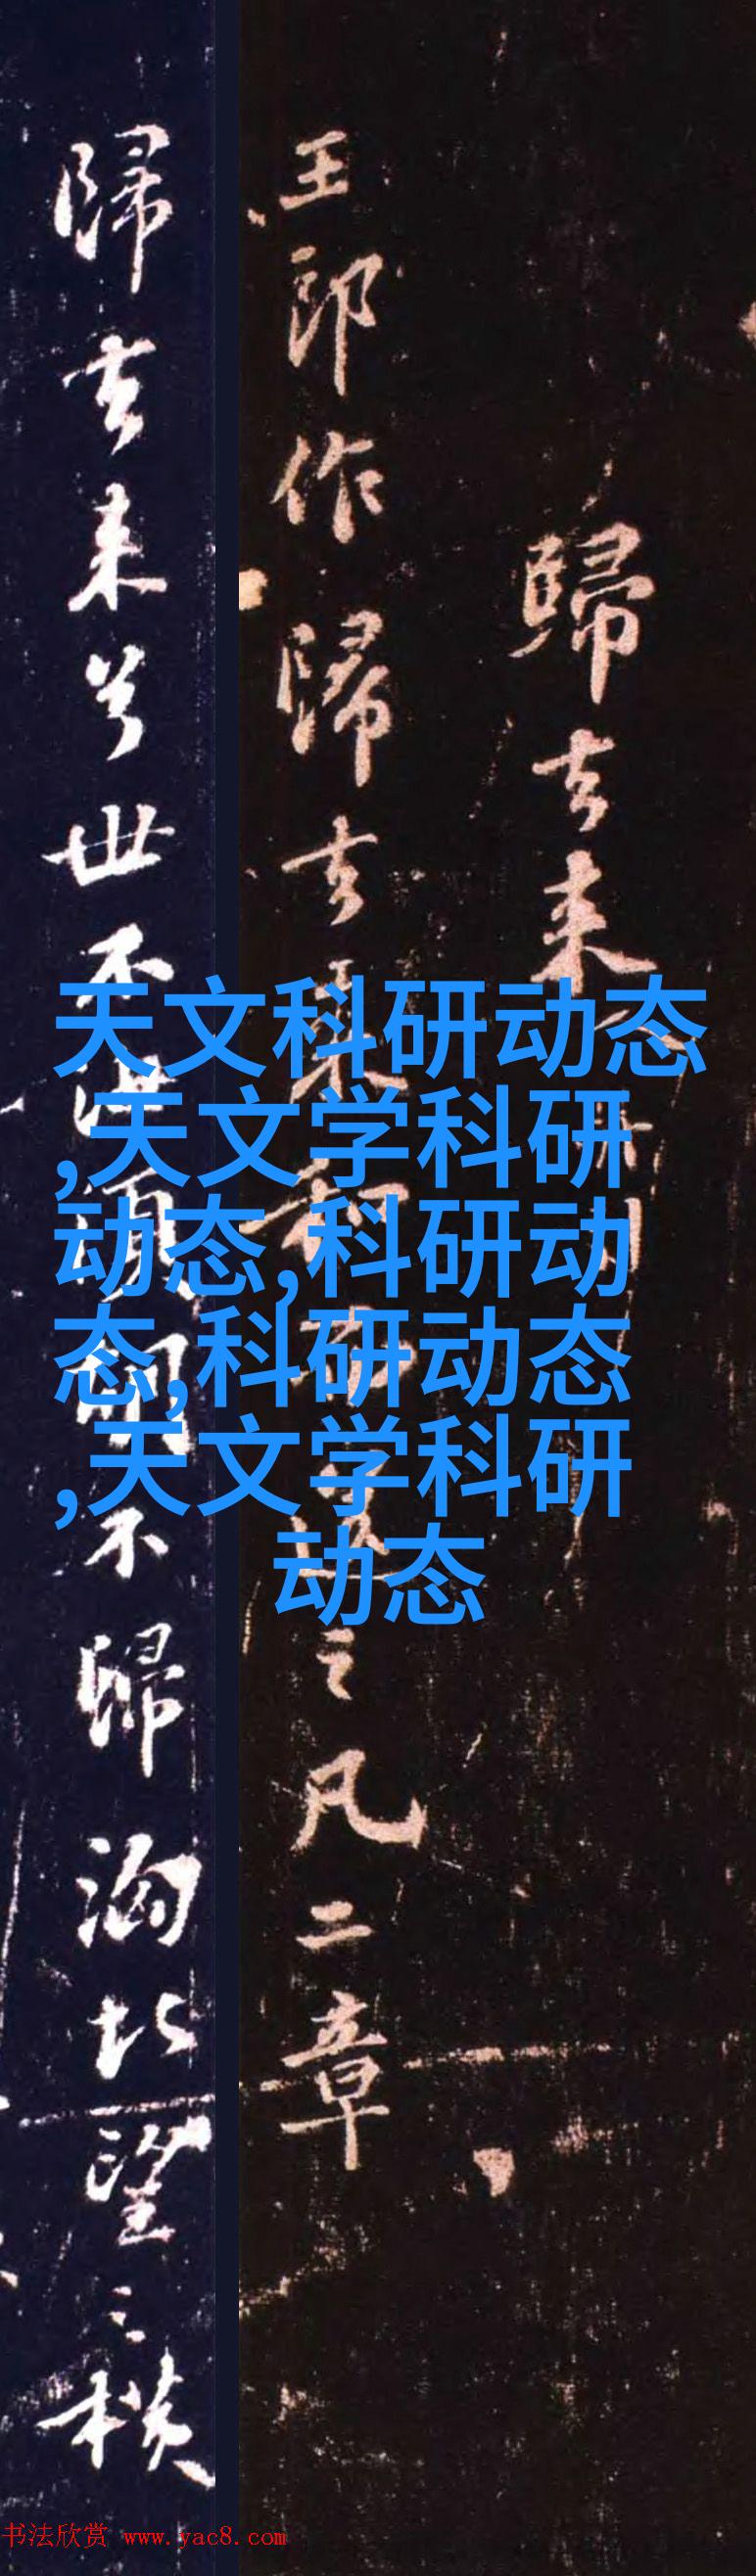 歸去来
王郎作歸去来 之凡二章
歸去来兮世不 不歸 北望之
天文科研动态
,天文学科研
动态,科研动
态,科研动态
,天文学科研
动态
书法欣赏 www.yac8.com